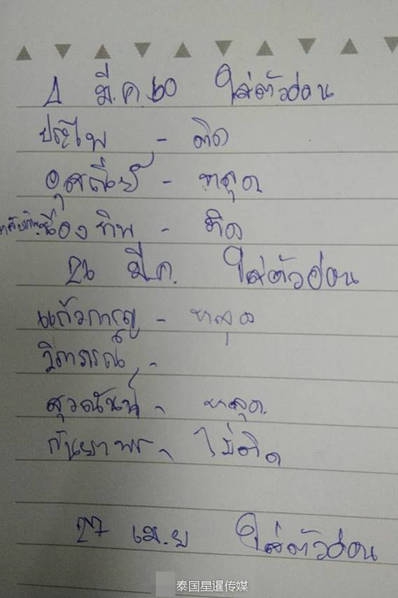 1 มี.ค.60 ใส่ตัวอ่อน
ประไพ - ติด
อุศณีย์ - หลุด
เนืองทิพ - ติด
2 มี.ค. ใส่ตัวอ่อน
แก้วกาญ - หลุด
วิภาภรณ์ -
สุวณันท์ - หลุด
กันยาพร - ไม่ติด
27 เม.ย ใส่ตัวอ่อน
泰国星暹传媒